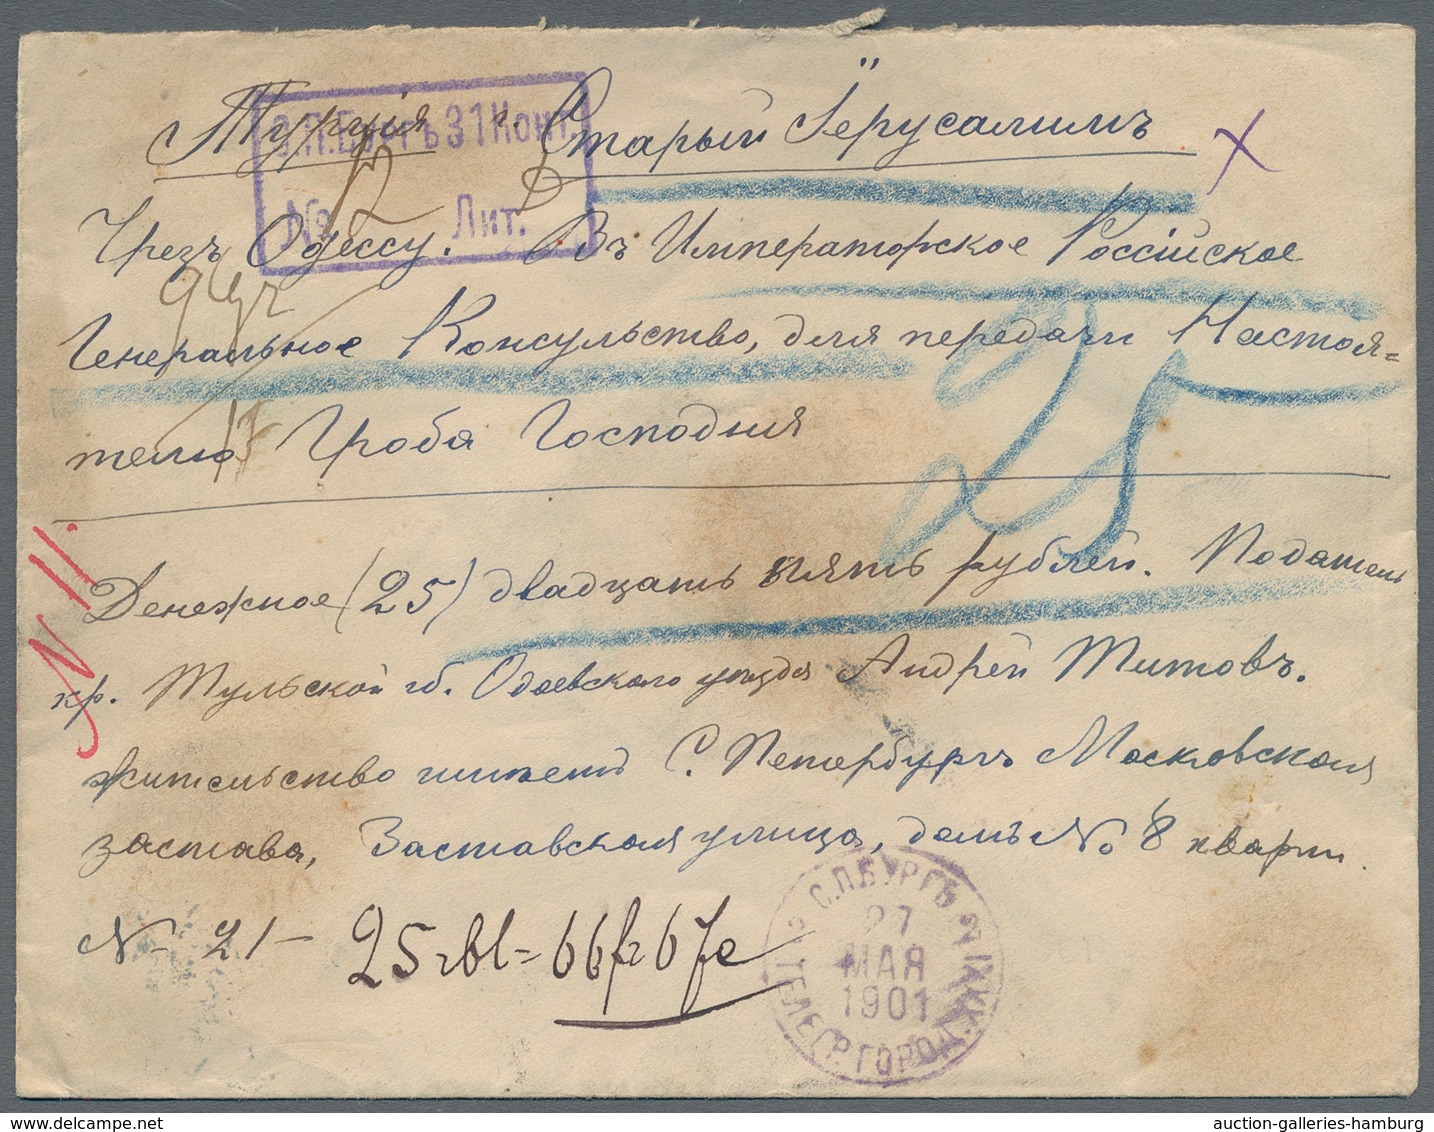 Турція г. Старый Іерусалимъ
С.П.Бургъ 31 Конт.
№ 12 Лит.
Чрезъ Одессу. Въ Императорское Россійское
Генеральное Консульство, для передачи Настоя=
телю Гроба Господня
25
№ 11.
Денежное (25) двадцать пять рублей. Податель
кр. Тульской губ. Одоевскаго уѣзда Андрей Титовъ.
жительство имѣетъ С. Петербургъ Московская
застава, Заставская улица, домъ № 8 кварт.
№ 21 – 25 rbl = 66 fr 67 c
С.П.БУРГЪ
27
МАЯ
1901
ТЕЛЕГР. ГОРОД.
auction-galleries-hamburg
www.delcampe.net